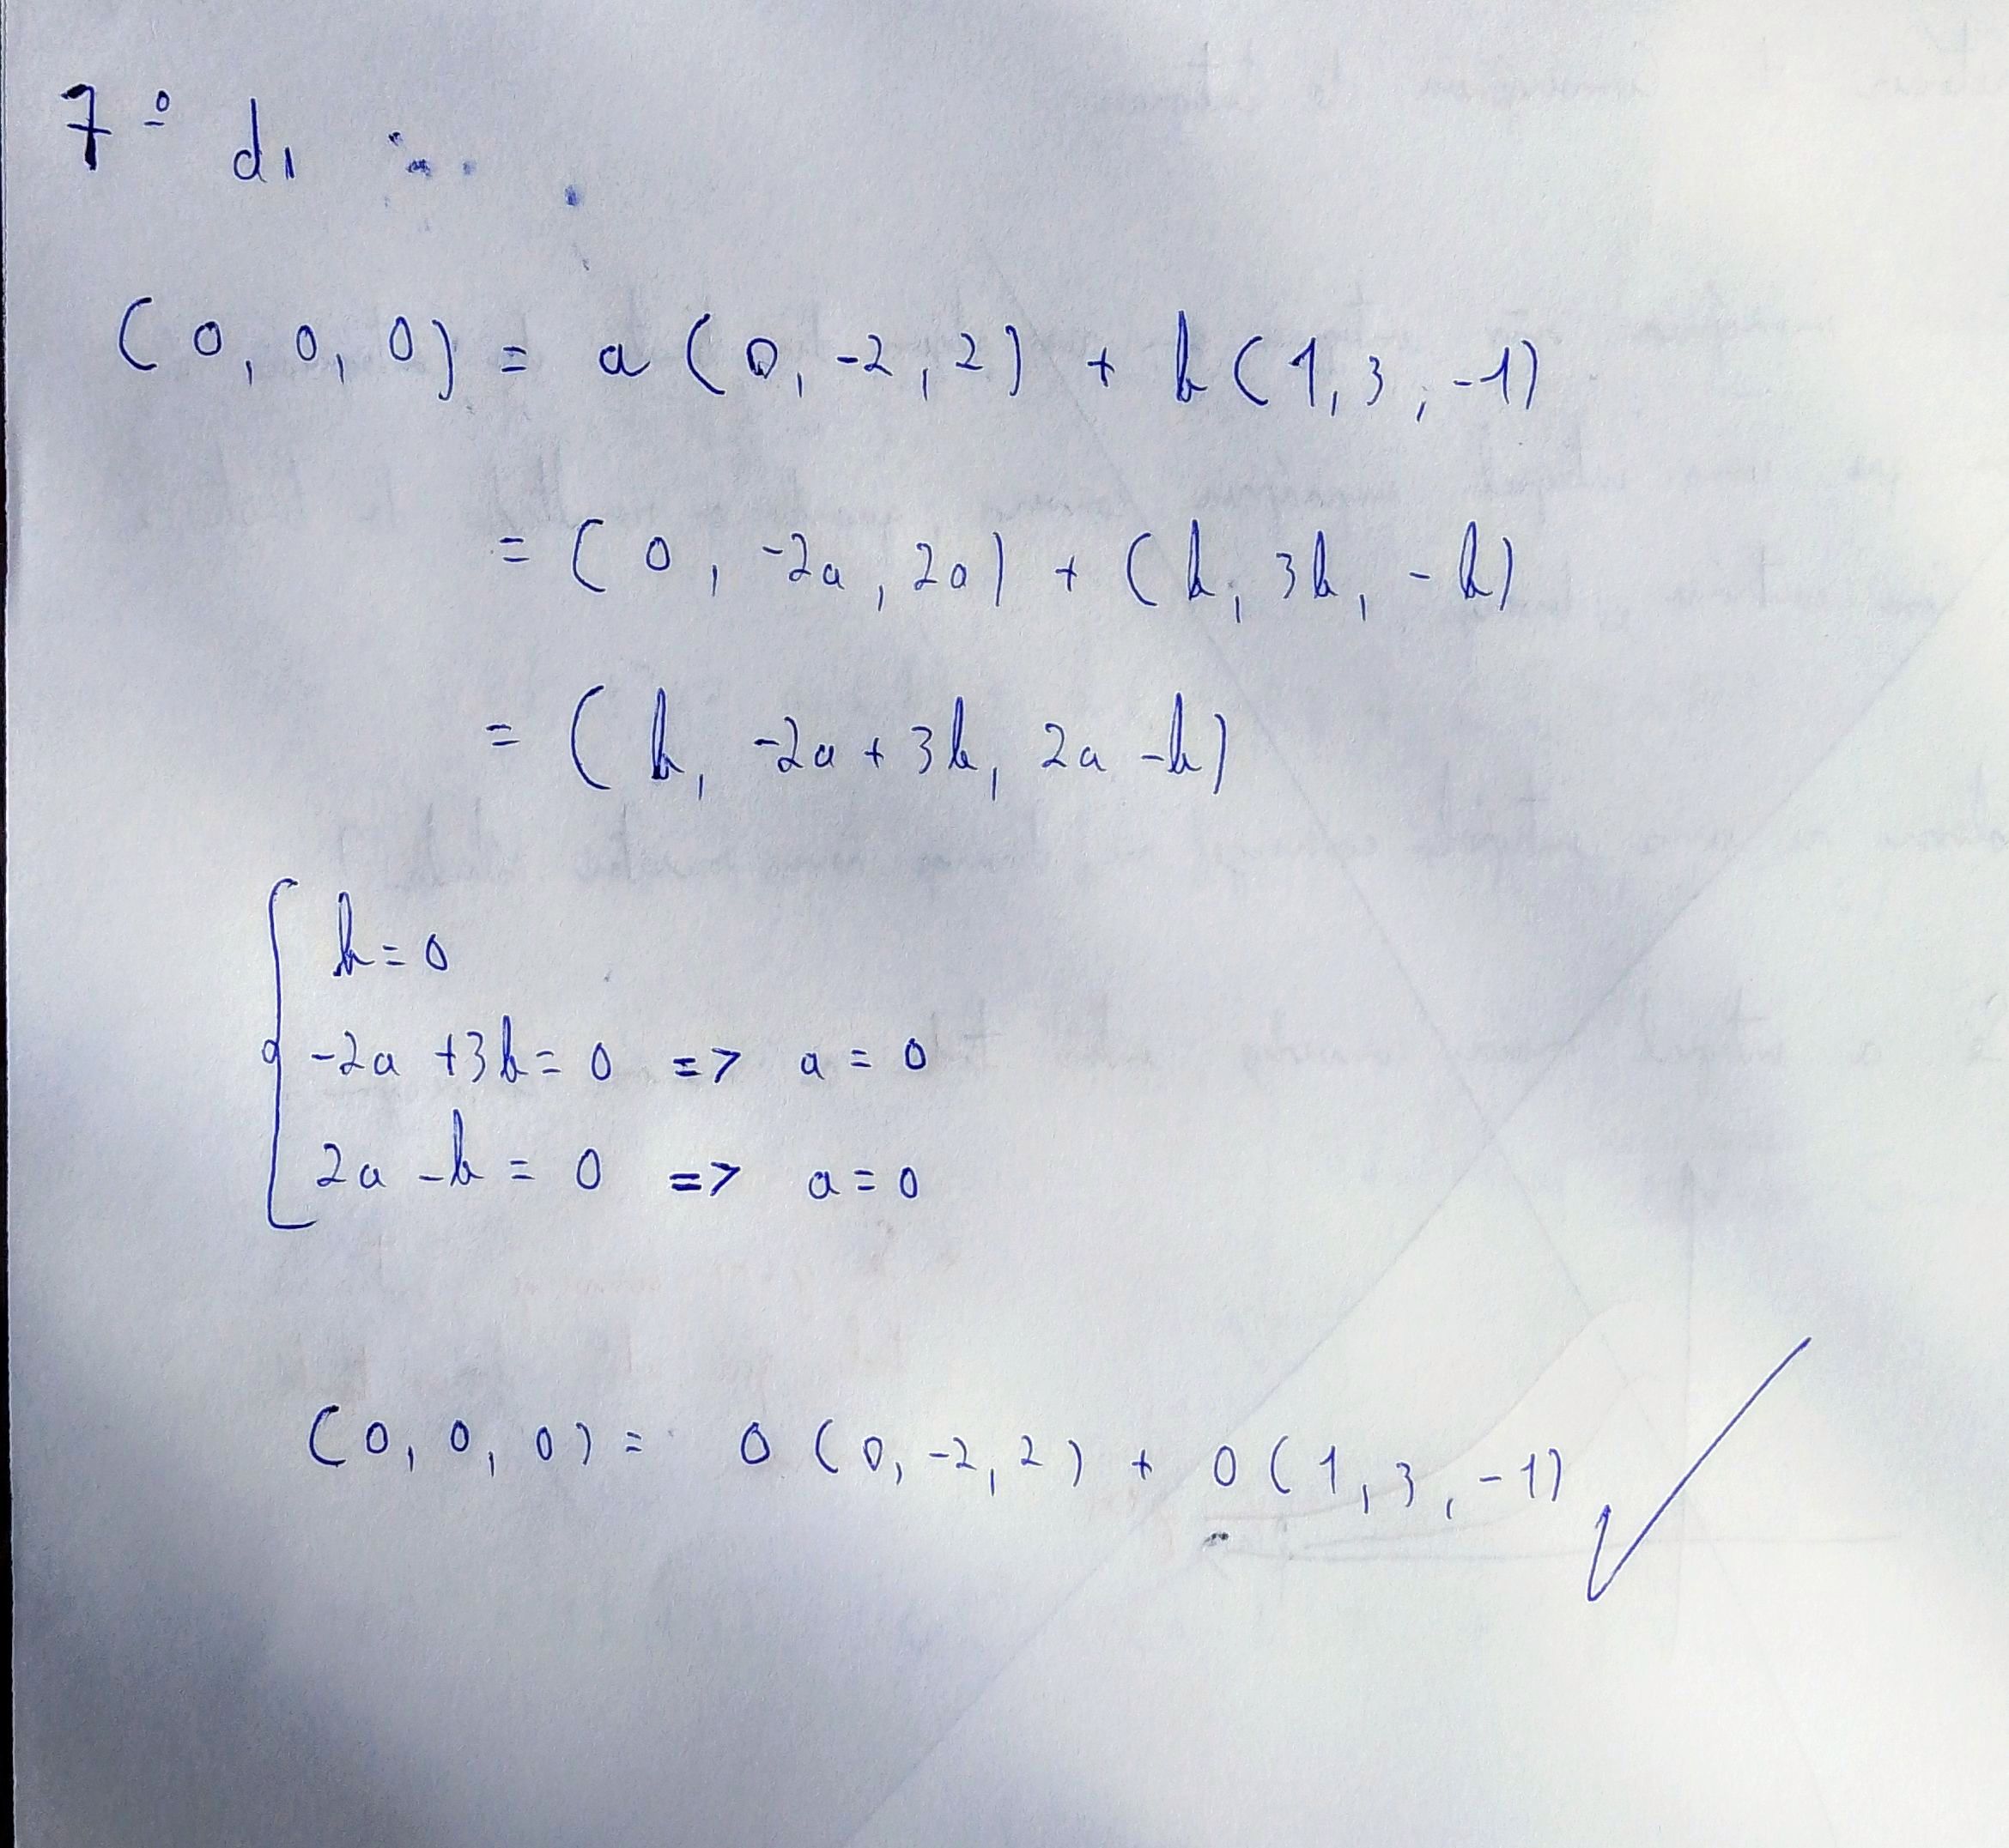 7º d)
(0, 0, 0) = a (0, -2, 2) + b (1, 3, -1)
= (0, -2a, 2a) + (b, 3b, -b)
= (b, -2a + 3b, 2a - b)
b = 0
-2a + 3b = 0 => a = 0
2a - b = 0 => a = 0
(0, 0, 0) = 0 (0, -2, 2) + 0 (1, 3, -1) ✓